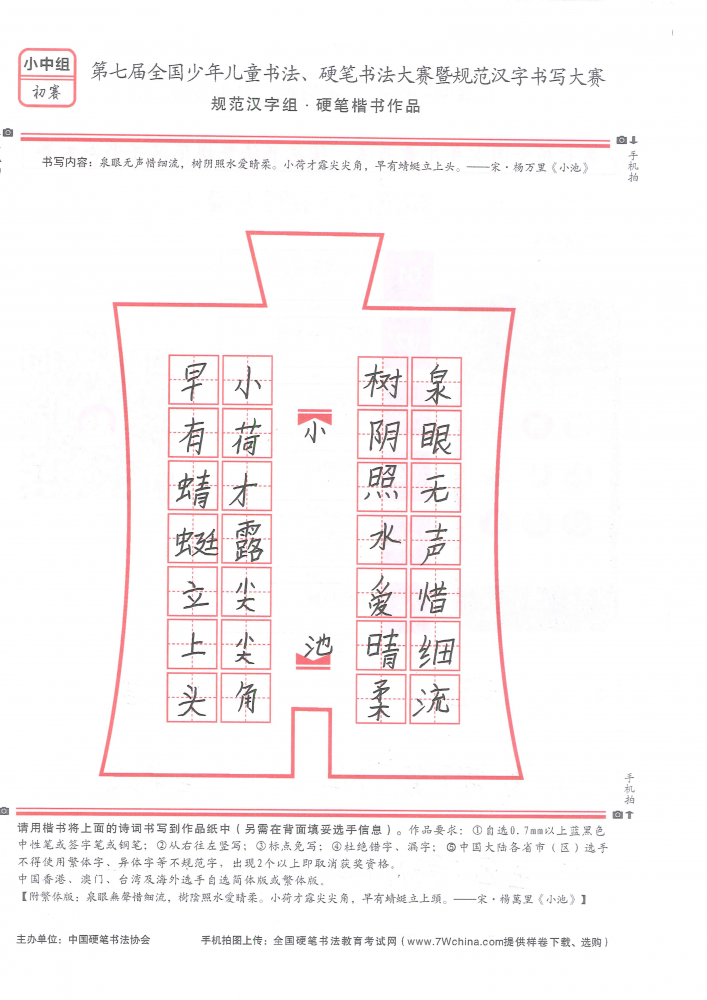 小中组
初赛
第七届全国少年儿童书法、硬笔书法大赛暨规范汉字书写大赛
规范汉字组·硬笔楷书作品
手机拍
书写内容：泉眼无声惜细流，树阴照水爱晴柔。小荷才露尖尖角，早有蜻蜓立上头。——宋·杨万里《小池》
泉眼无声惜细流
树阴照水爱晴柔
小池
小荷才露尖尖角
早有蜻蜓立上头
手机拍
请用楷书将上面的诗词书写到作品纸中（另需在背面填妥选手信息）。作品要求：①自选0.7mm以上蓝黑色
中性笔或签字笔或钢笔；②从右往左竖写；③标点免写；④杜绝错字、漏字；⑤中国大陆各省市（区）选手
不得使用繁体字、异体字等不规范字，出现2个以上即取消获奖资格。
中国香港、澳门、台湾及海外选手自选简体版或繁体版。
【附繁体版：泉眼無聲惜细流，樹陰照水爱晴柔。小荷才露尖尖角，早有蜻蜓立上頭。——宋·楊萬里《小池》】
主办单位：中国硬笔书法协会
手机拍图上传：全国硬笔书法教育考试网（www.7Wchina.com提供样卷下载、选购）